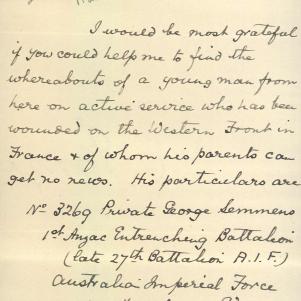 I would be most grateful
if you could help me to find the
whereabouts of a young man from
here on active service who has been
wounded on the Western Front in
France & of whom his parents can
get no news. His particulars are
No 3269 Private George Semmens
1st Anzac Entrenching Battalion
(late 27th Battalion A.I.F.)
Australia Imperial Force